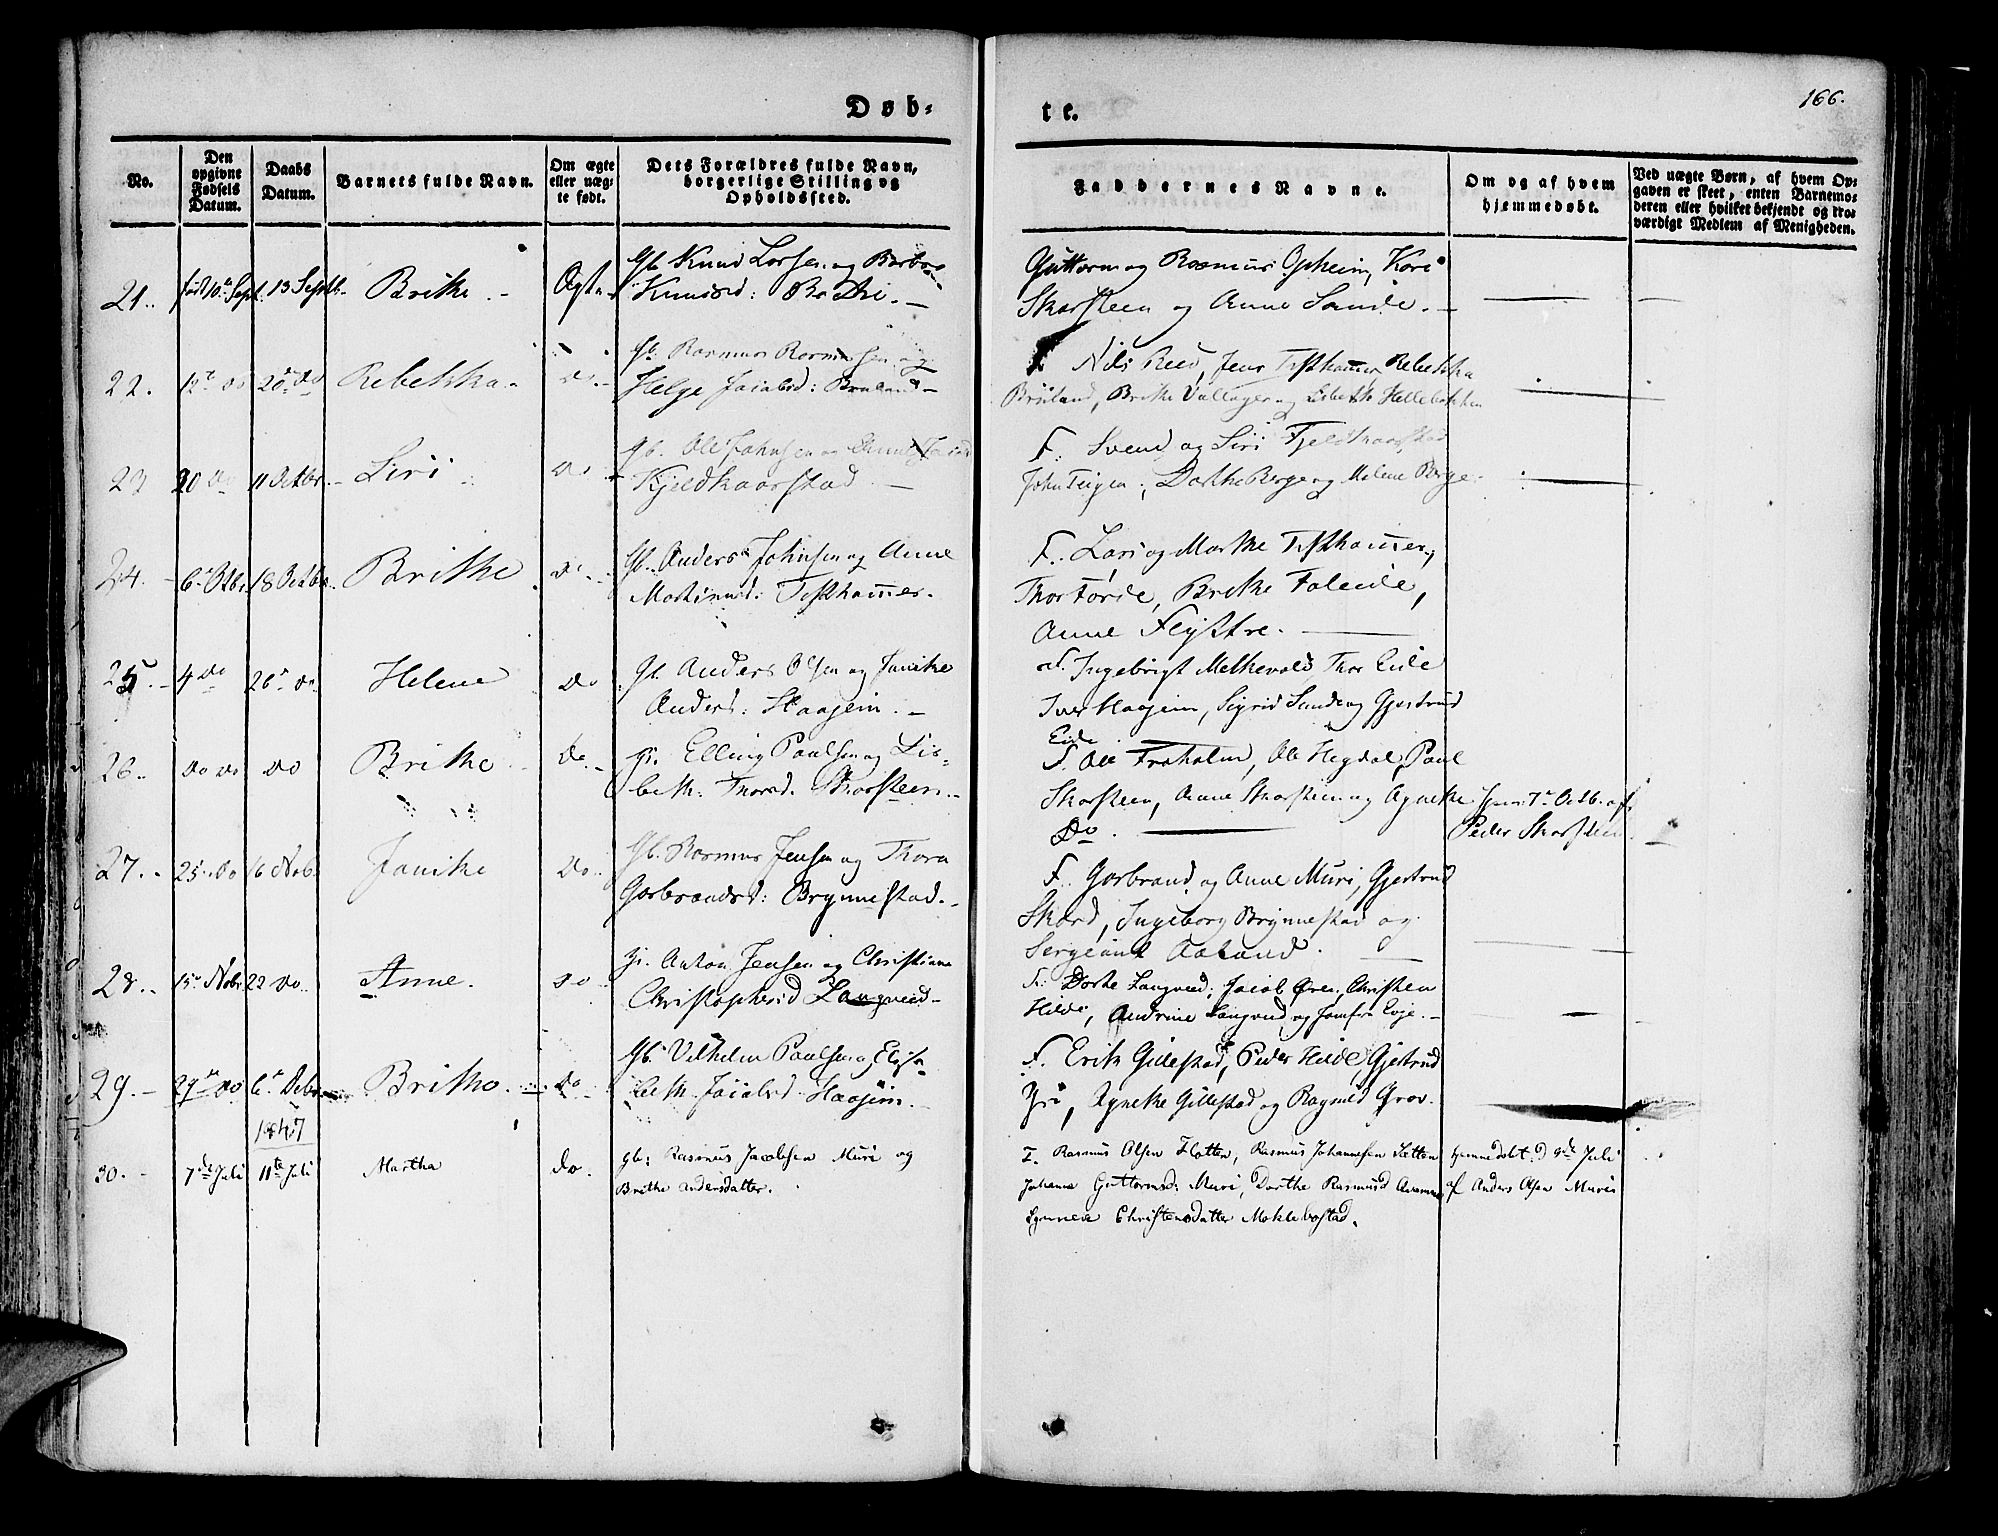 Døb-
te.
166.
No.
Den
opgivne
Fødsels
Datum.
Daabs
Datum.
Barnets fulde Navn.
Om ægte
eller uæg-
te født.
Dets Forældres fulde Navn,
borgerlige Stilling og
Opholdssted.
Faddernes Navne.
Om og af hvem
hjemmedøbt.
Ved uægte Børn, af hvem Op-
gaven er skeet, enten Barnemo-
deren eller hvilket bekjendt og tro-
værdigt Medlem af Menigheden.
21.. født 10de Sept. 13 Septb. Brithe Ægte Gb. Knud Larsen og Barbra
Knudsd:
Guttorm og Rasmus Opheim, Kari
Skarsteen og Anne Sande.
22. 12te do 20de do Rebekka do Gb. Rasmus Rasmussen og
Helge Jacobsd:
Nils Reed, Jens Tisthammer, Rebekka
Brithe og Lisbeth Hellebakken
23 20 do 11 Octbr. Siri do Gb. Ole Johnsen og
Fjeldkaarstad
F. Svend og Siri Fjeldkaarstad
John Teigen, Dorthe Berge og Malene Berge
24. 6te Octbr. 18 Octbr. Brithe do Gb. Anders Johnsen og Anne
Mathisd: Tisthammer.
F. Lars og Marthe Tisthammer,
Thor Førde, Brithe Faleide,
Anne Flystre.
25. 4 do 26de do Helene do Gb. Anders Olsen og Janike
Andersd: Haajem.
F. Ingebrigt Melkevold, Thor Eide
Iver Haajem, Sigrid Sande og Gjertrud
Eide
26. do do do Brithe do Elling Paulsen og Lis-
beth Thorsd. Skarsteen.
F. Ole Fraholm, Ole Hegdal, Paul
Skarsteen, Anne Skarsteen og Agnethe
Do.
7de Octb. af
Peder Skarsteen
27. 25 do 16 Novb. Janike do Gb. Rasmus Jensen og Thora
Garbrandsd: Brynnestad.
F. Garbrand og Anne Muri, Gjertrud
Skaard, Ingeborg Brynnestad og
Sergeant Aaland.
28. 15de Novbr 22 do Anne. do Anton Jensen og Christianne
Christophersd Langveed
F. Dorthe Langveed, Jacob Øren, Christen
Hilde, Andrine Langveed og Jomfru Evje.
29. 29de do 6te Debr. Britha. do Gb. Vilhelm Paulsen og Elisa-
beth Jacobsd. Haajem.
F. Erik Gidestad, Peder Hilde, Gjertrud
Yri, Agnethe Gillestad og Ragnild Grov.
1847
30. 7de Juli 11te Juli Martha do. Gb: Rasmus Jacobsen Muri og
Brithe Andersdatter.
F. Rasmus Olsen Flotten, Rasmus Johannesen Sætten
Johanne Guttormsd: Muri, Dorthe Rasmusd
Synneve Christensdatter Moklebostad.
hjemmedøbt d 9de Juli
af Anders Olsen Muri